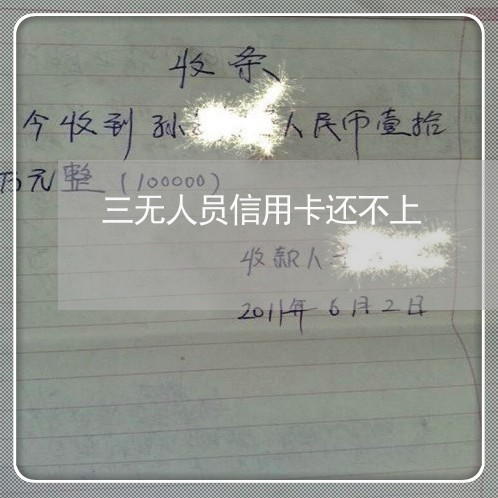 收条
今收到孙 人民币壹拾
万元整（100000）
三无人员信用卡还不上
收款人
2011年6月2日